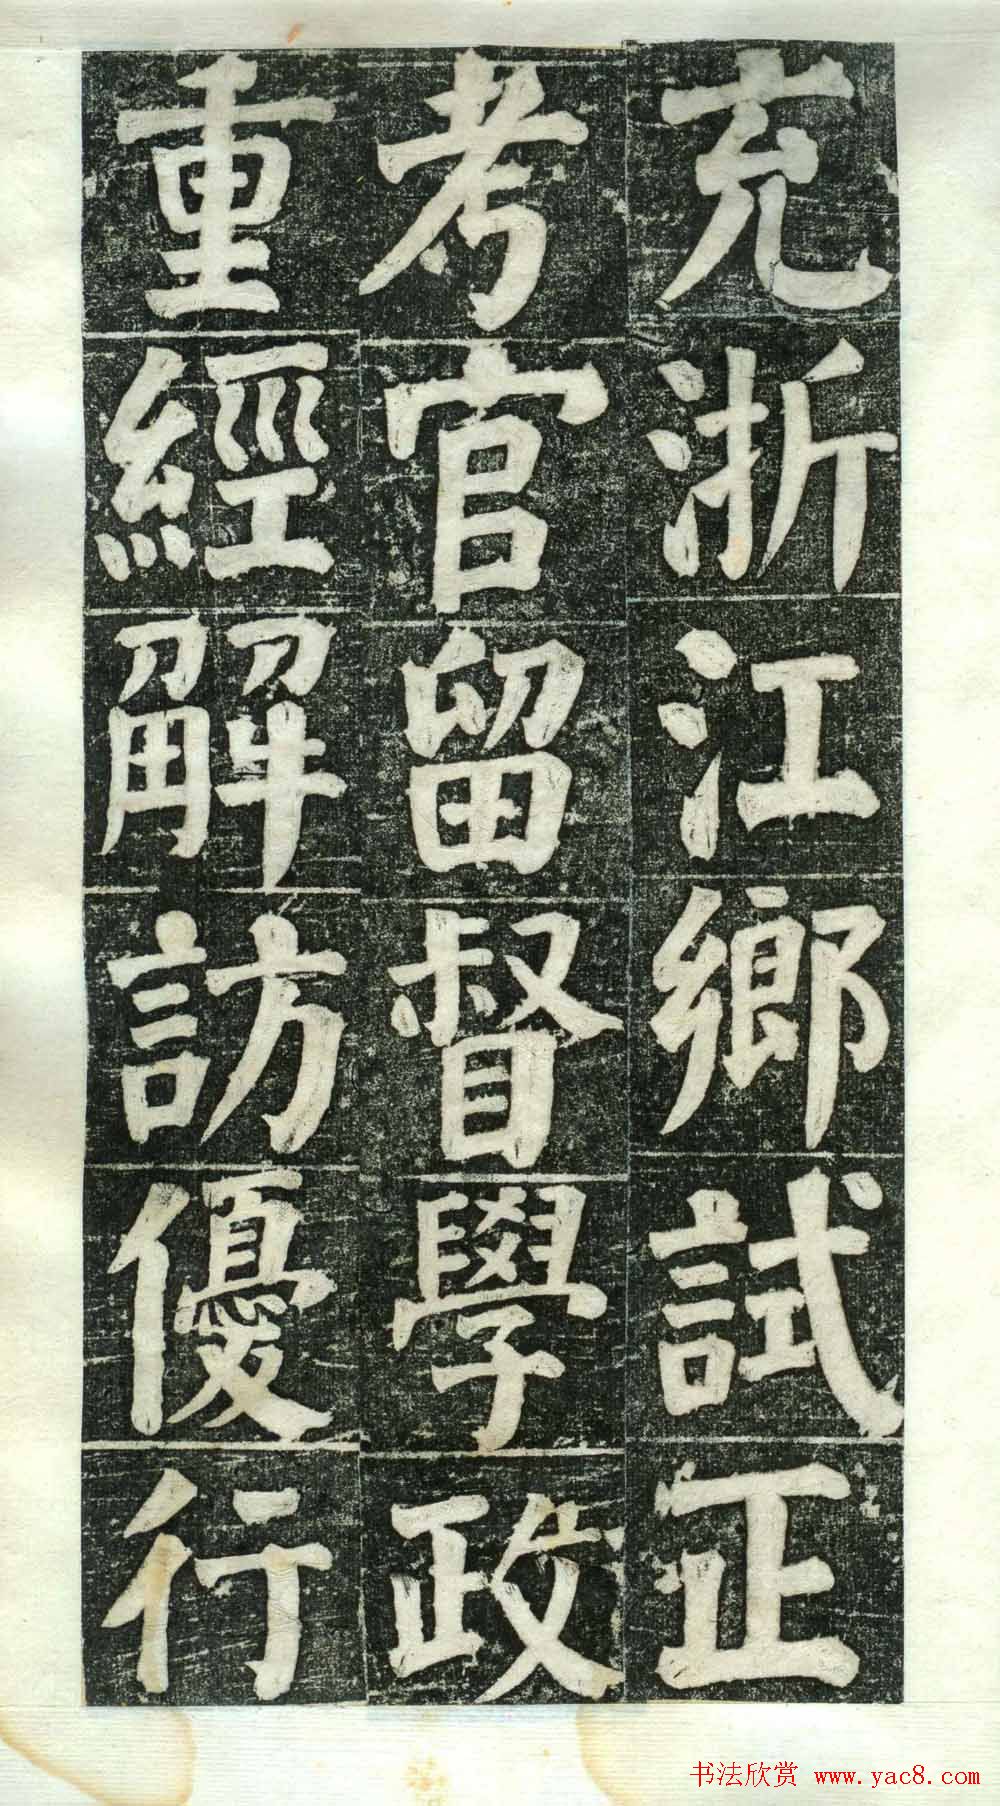 充浙江鄉試正
考官留督學政
重經解訪優行
书法欣赏 www.yac8.com